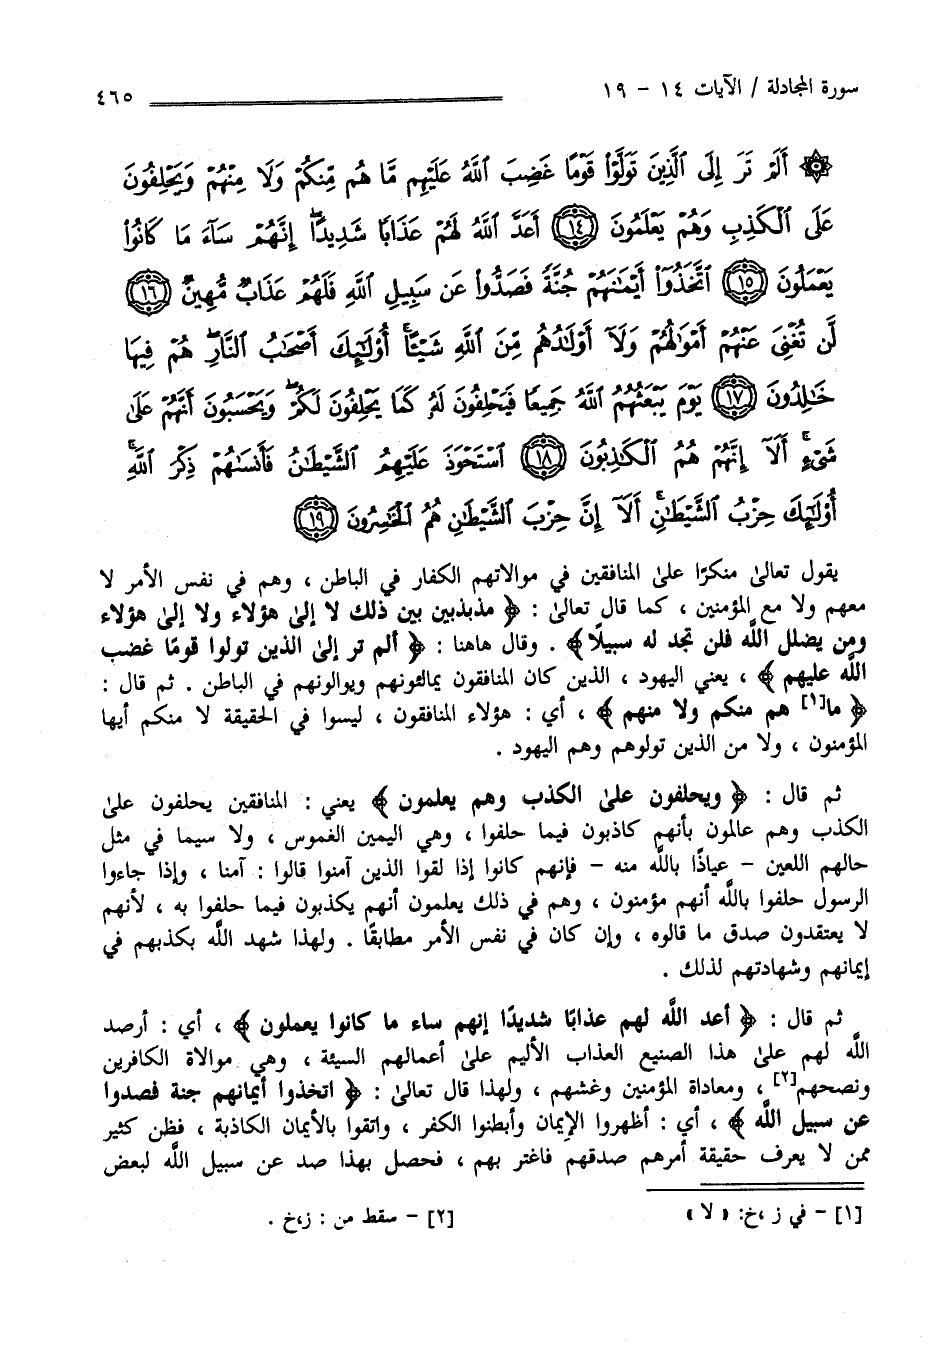 سورة المجادلة / الآيات ١٤ - ١٩ ٤٦٥
۞ أَلَمْ تَرَ إِلَى ٱلَّذِينَ تَوَلَّوْا۟ قَوْمًا غَضِبَ ٱللَّهُ عَلَيْهِم مَّا هُم مِّنكُمْ وَلَا مِنْهُمْ وَيَحْلِفُونَ
عَلَى ٱلْكَذِبِ وَهُمْ يَعْلَمُونَ ١٤ أَعَدَّ ٱللَّهُ لَهُمْ عَذَابًا شَدِيدًا ۖ إِنَّهُمْ سَآءَ مَا كَانُوا۟
يَعْمَلُونَ ١٥ ٱتَّخَذُوٓا۟ أَيْمَٰنَهُمْ جُنَّةً فَصَدُّوا۟ عَن سَبِيلِ ٱللَّهِ فَلَهُمْ عَذَابٌ مُّهِينٌ ١٦
لَّن تُغْنِىَ عَنْهُمْ أَمْوَٰلُهُمْ وَلَآ أَوْلَٰدُهُم مِّنَ ٱللَّهِ شَيْـًٔا ۚ أُو۟لَٰٓئِكَ أَصْحَٰبُ ٱلنَّارِ ۖ هُمْ فِيهَا
خَٰلِدُونَ ١٧ يَوْمَ يَبْعَثُهُمُ ٱللَّهُ جَمِيعًا فَيَحْلِفُونَ لَهُۥ كَمَا يَحْلِفُونَ لَكُمْ ۖ وَيَحْسَبُونَ أَنَّهُمْ عَلَىٰ
شَىْءٍ ۚ أَلَآ إِنَّهُمْ هُمُ ٱلْكَٰذِبُونَ ١٨ ٱسْتَحْوَذَ عَلَيْهِمُ ٱلشَّيْطَٰنُ فَأَنسَىٰهُمْ ذِكْرَ ٱللَّهِ ۚ
أُو۟لَٰٓئِكَ حِزْبُ ٱلشَّيْطَٰنِ ۚ أَلَآ إِنَّ حِزْبَ ٱلشَّيْطَٰنِ هُمُ ٱلْخَٰسِرُونَ ١٩
يقول تعالىٰ منكرًا علىٰ المنافقين في موالاتهم الكفار في الباطن ، وهم في نفس الأمر لا
معهم ولا مع المؤمنين ، كما قال تعالىٰ : ﴿ مذبذبين بين ذلك لا إلىٰ هؤلاء ولا إلىٰ هؤلاء
ومن يضلل اللَّه فلن تجد له سبيلًا ﴾ . وقال هاهنا : ﴿ ألم تر إلىٰ الذين تولوا قومًا غضب
اللَّه عليهم ﴾ ، يعني اليهود ، الذين كان المنافقون يمالئونهم ويوالونهم في الباطن . ثم قال :
﴿ ما[١] هم منكم ولا منهم ﴾ ، أي : هؤلاء المنافقون ، ليسوا في الحقيقة لا منكم أيها
المؤمنون ، ولا من الذين تولوهم وهم اليهود .
ثم قال : ﴿ ويحلفون علىٰ الكذب وهم يعلمون ﴾ يعني : المنافقين يحلفون علىٰ
الكذب وهم عالمون بأنهم كاذبون فيما حلفوا ، وهي اليمين الغموس ، ولا سيما في مثل
حالهم اللعين - عياذًا باللَّه منه - فإنهم كانوا إذا لقوا الذين آمنوا قالوا : آمنا ، وإذا جاءوا
الرسول حلفوا باللَّه أنهم مؤمنون ، وهم في ذلك يعلمون أنهم يكذبون فيما حلفوا به ، لأنهم
لا يعتقدون صدق ما قالوه ، وإن كان في نفس الأمر مطابقًا . ولهذا شهد اللَّه بكذبهم في
إيمانهم وشهادتهم لذلك .
ثم قال : ﴿ أعد اللَّه لهم عذابًا شديدًا إنهم ساء ما كانوا يعملون ﴾ ، أي : أرصد
اللَّه لهم علىٰ هذا الصنيع العذاب الأليم علىٰ أعمالهم السيئة ، وهي موالاة الكافرين
ونصحهم[٢] ، ومعاداة المؤمنين وغشهم ، ولهذا قال تعالىٰ : ﴿ اتخذوا أيمانهم جنة فصدوا
عن سبيل اللَّه ﴾ ، أي : أظهروا الإيمان وأبطنوا الكفر ، واتقوا بالأيمان الكاذبة ، فظن كثير
ممن لا يعرف حقيقة أمرهم صدقهم فاغتر بهم ، فحصل بهذا صد عن سبيل اللَّه لبعض
[١] - في ز ،خ: « لا » [٢] - سقط من : ز،خ .